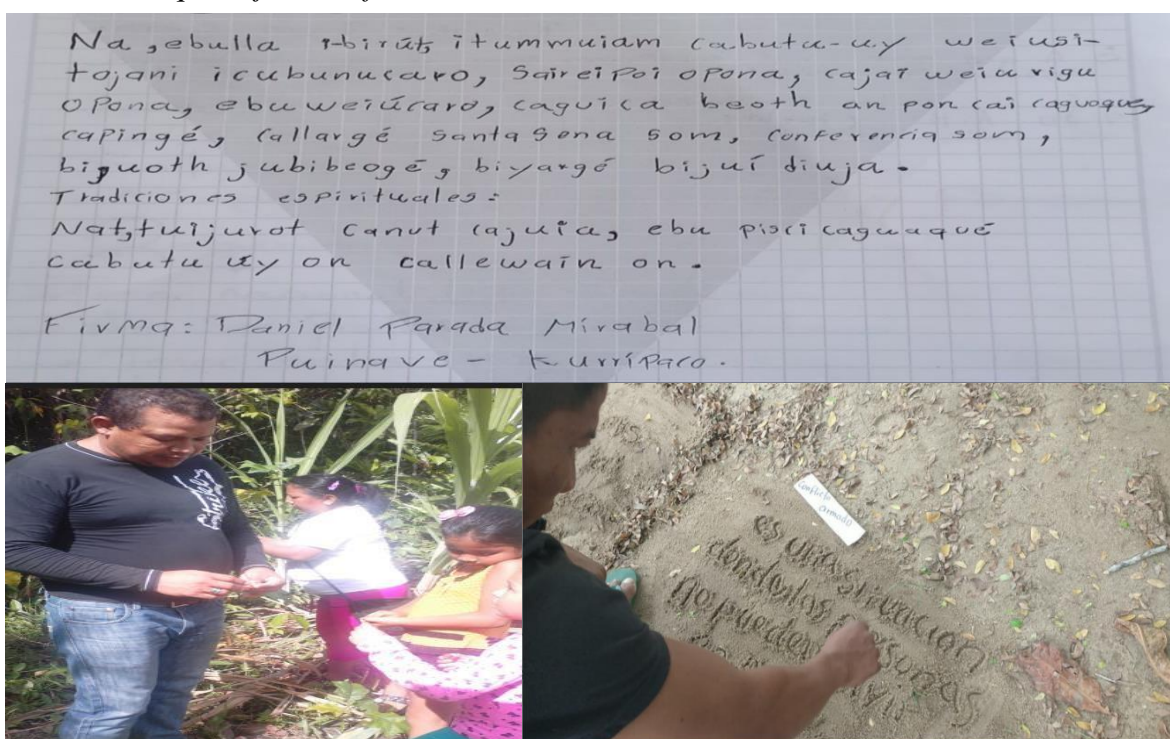 Na, ebulla i-birút, itummuiam cabutu-uy weiusi-
tojani icubunucaro, Saireipoi opona, cajaí weiu rigu
opona, ebu weiúcaro, caguica beoth an pon cai caguaque,
capingé, callargé santa sena som, conferencia som,
biguoth jubibeogé, biyargé bijuí diuja.
Tradiciones espirituales:
Nat, tuijurot canut cajuia, ebu pisci caguaqué
cabutu uy on callewaín on.
Firma: Daniel Parada Mirabal
Puinave - Kurrípaco.
Conflicto
armado
es una situacion
donde las personas
no pueden